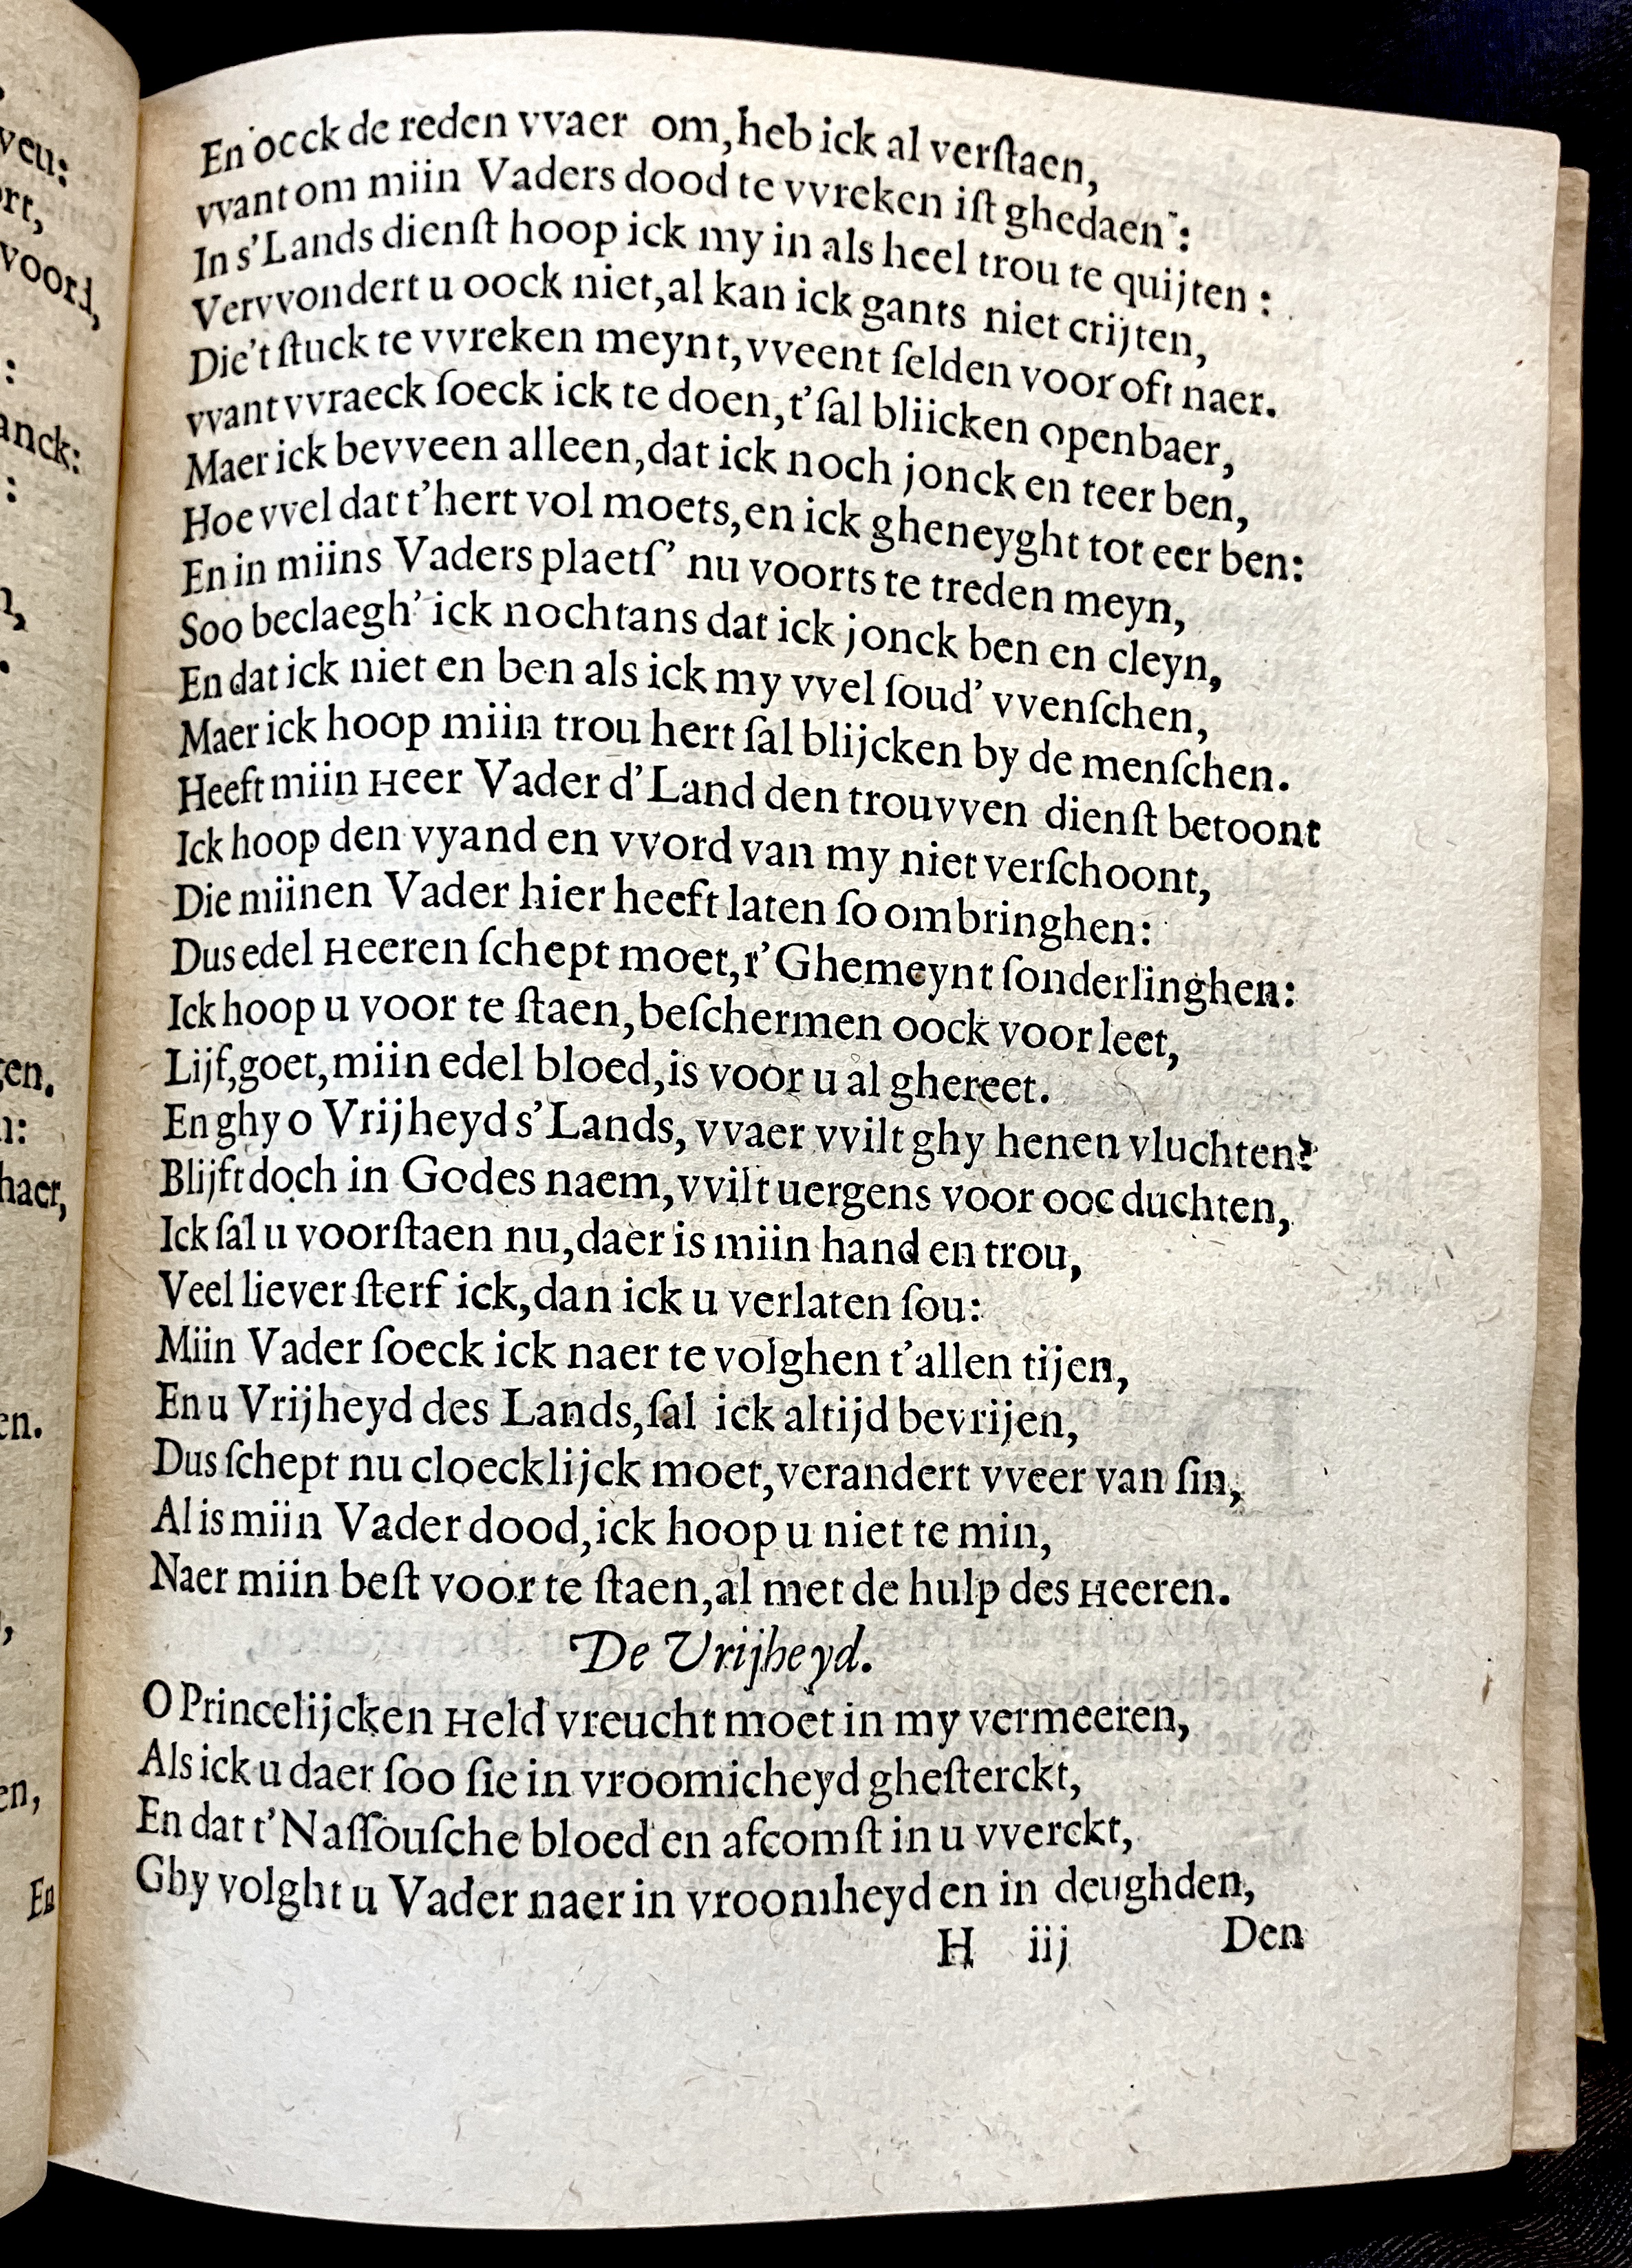 En occk de reden vvaer om, heb ick al verſtaen,
vvant om miin Vaders dood te vvreken iſt ghedaen :
In s'Lands dienſt hoop ick my in als heel trou te quijten :
Vervvondert u oock niet, al kan ick gants niet crijten,
Die't ſtuck te vvreken meynt, vveent ſelden voor oft naer.
vvant vvraeck ſoeck ick te doen, t'ſal bliicken openbaer,
Maer ick bevveen alleen, dat ick noch jonck en teer ben,
Hoe vvel dat t'hert vol moets, en ick gheneyght tot eer ben:
En in miins Vaders plaetſ' nu voorts te treden meyn,
Soo beclaegh' ick nochtans dat ick jonck ben en cleyn,
En dat ick niet en ben als ick my vvel ſoud' vvenſchen,
Maer ick hoop miin trou hert ſal blijcken by de menſchen.
Heeft miin Heer Vader d'Land den trouvven dienſt betoont
Ick hoop den vyand en vvord van my niet verſchoont,
Die miinen Vader hier heeft laten ſo ombringhen:
Dus edel Heeren ſchept moet, t'Ghemeynt ſonderlinghen:
Ick hoop u voor te ſtaen, beſchermen oock voor leet,
Lijf, goet, miin edel bloed, is voor u al ghereet.
En ghy o Vrijheyd s'Lands, vvaer vvilt ghy henen vluchten?
Blijft doch in Godes naem, vvilt uergens voor ooc duchten,
Ick ſal u voorſtaen nu, daer is miin hand en trou,
Veel liever ſterf ick, dan ick u verlaten ſou:
Miin Vader ſoeck ick naer te volghen t'allen tijen,
En u Vrijheyd des Lands, ſal ick altijd bevrijen,
Dus ſchept nu cloecklijck moet, verandert vveer van ſin,
Al is miin Vader dood, ick hoop u niet te min,
Naer miin beſt voor te ſtaen, al met de hulp des Heeren.
De Vrijheyd.
O Princelijcken Held vreucht moet in my vermeeren,
Als ick u daer ſoo ſie in vroomicheyd gheſterckt,
En dat t'Naſſouſche bloed en afcomſt in u vverckt,
Ghy volght u Vader naer in vroomheyd en in deughden,
H iij Den